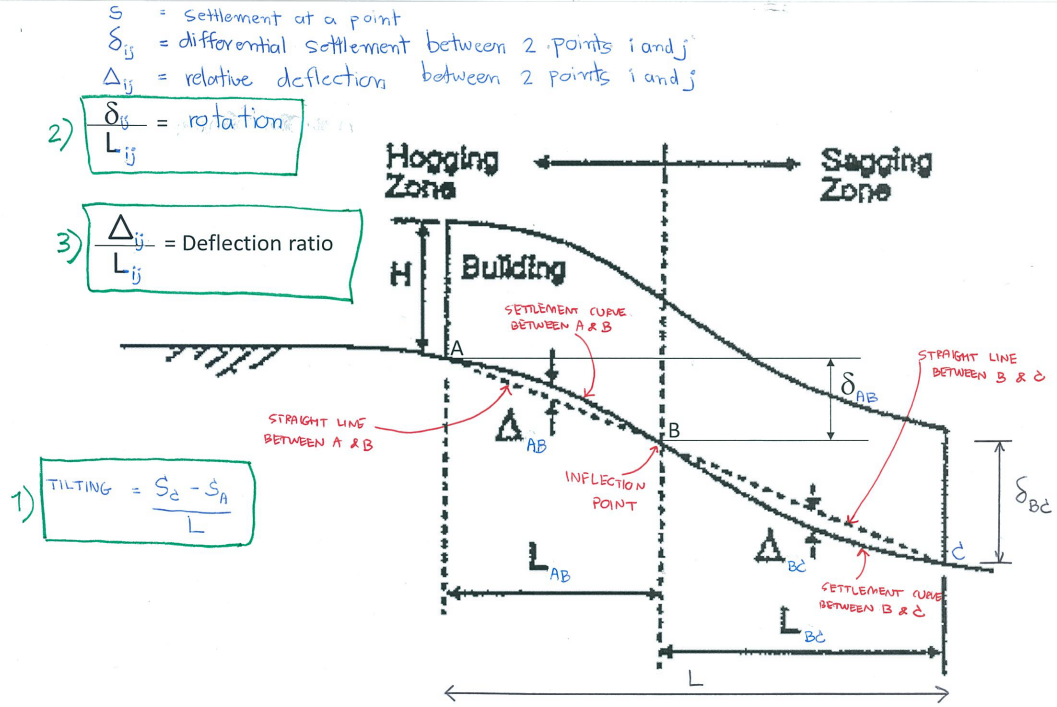 S = settlement at a point
δij = differential settlement between 2 points i and j
Δij = relative deflection between 2 points i and j
2) δij / Lij = rotation
3) Δij / Lij = Deflection ratio
1) TILTING = (Sc - SA) / L
Hogging Zone
Sagging Zone
H
Building
SETTLEMENT CURVE
BETWEEN A & B
A
STRAIGHT LINE
BETWEEN B & C
δAB
STRAIGHT LINE
BETWEEN A & B
ΔAB
B
INFLECTION
POINT
δBC
ΔBC
C
SETTLEMENT CURVE
BETWEEN B & C
LAB
LBC
L